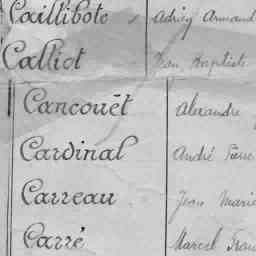 Caillibote Adrien Armand
Calliot Jean Baptiste
Cancouët Alexandre
Cardinal André Pierre
Carreau Jean Marie
Carré Marcel Fran